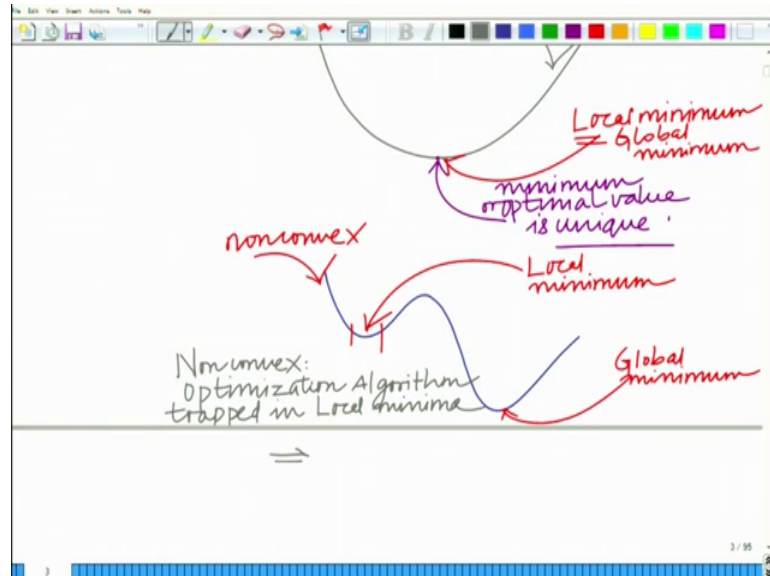 File Edit View Insert Actions Tools Help
B I
Local minimum
= Global
minimum
minimum
or optimal value
is unique.
nonconvex
Local
minimum
Nonconvex:
Optimization Algorithm
trapped in Local minima
Global
minimum
⇒
3 / 95
3